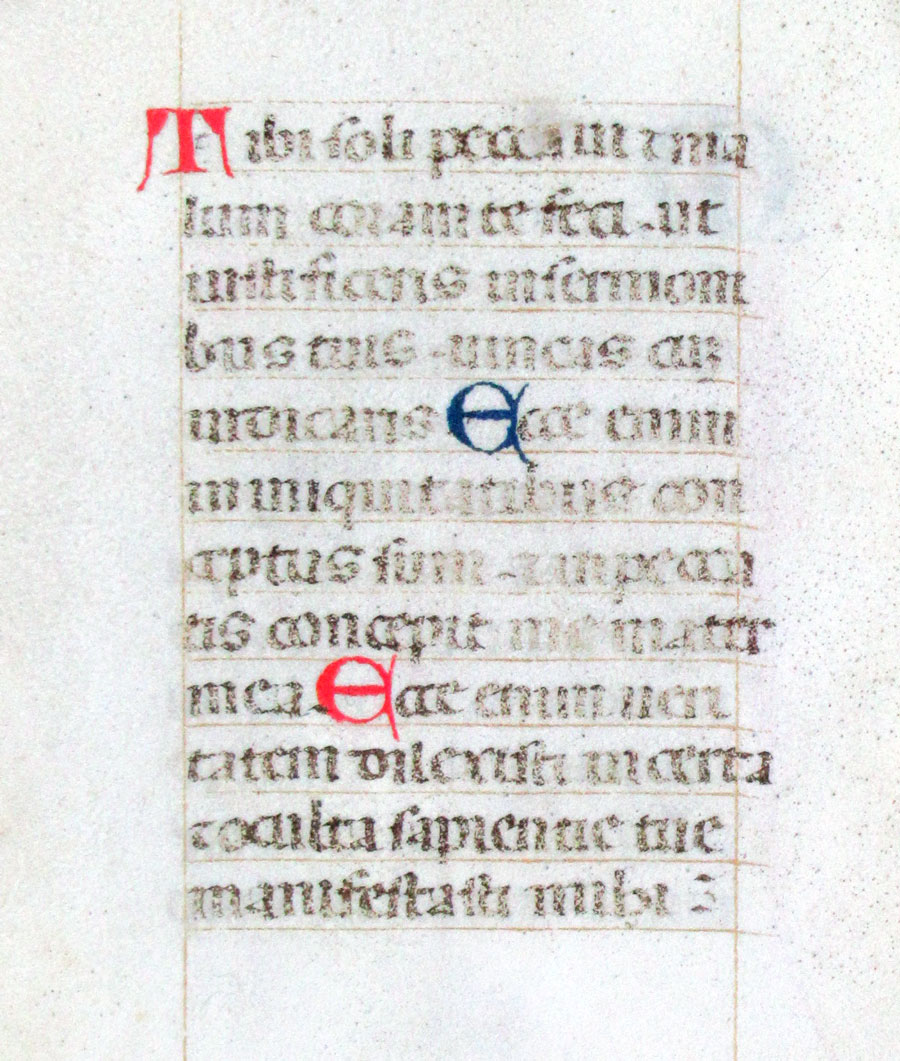 Tibi soli peccaui ⁊ ma
lum coram te feci . ut
iustificeris in sermoni
bus tuis . uincas cuz
iudicaris Ecce enim
in iniquitatibus con
ceptus sum . ⁊ in pecca
tis concepit me mater
mea . Ecce enim ueri
tatem dilexisti incerta
⁊ occulta sapientie tue
manifestasti mihi